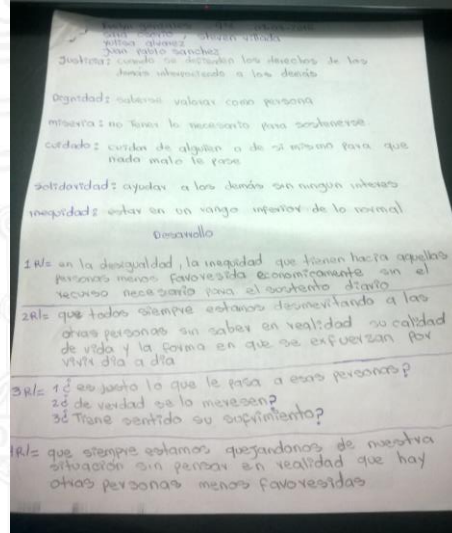 steven villada
yulisa alvarez
Juan Pablo Sanchez
Justicia: cuando se defienden los derechos de los
demás interviniendo a los demás
Dignidad: saberse valorar como persona
miseria: no Tener lo necesario para sostenerse.
cuidado: cuidar de alguien o de sí mismo para que
nada malo le pase
solidaridad: ayudar a los demás sin ningun interes
inequidad: estar en un rango inferior de lo normal
Desarrollo
1R/= en la desigualdad, la inequidad que tienen hacia aquellas
personas menos favoresida economicamente sin el
recurso necesario para el sustento diario
2R/= que todos siempre estamos desmeritando a las
otras personas sin saber en realidad su calidad
de vida y la forma en que se exfuerzan por
vivir dia a dia
3R/= 1¿ es justo lo que le pasa a esas personas?
2¿ de verdad se lo meresen?
3¿ Tiene sentido su sufrimiento?
R/= que siempre estamos quejandonos de nuestra
situación sin pensar en realidad que hay
otras personas menos favoresidas